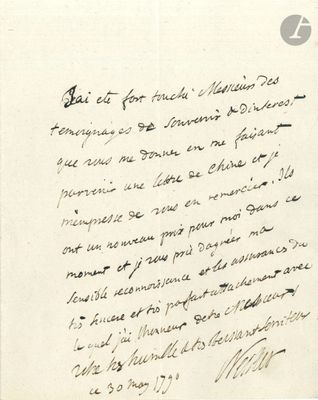 J'ai eté fort touché Messieurs des
temoignages de souvenir & d'interest
que vous me donner en me faisant
parvenir une lettre de Chine et je
m'empresse de vous en remercier. Ils
ont un nouveau prix pour moi dans ce
moment et je vous prie d'agréer ma
sensible reconnoissance et les assurances du
tres sincere et tres parfait attachement avec
lequel j'ai l'honneur detre Messieurs
votre tres humble & tres obeissant serviteur
ce 30 may 1790